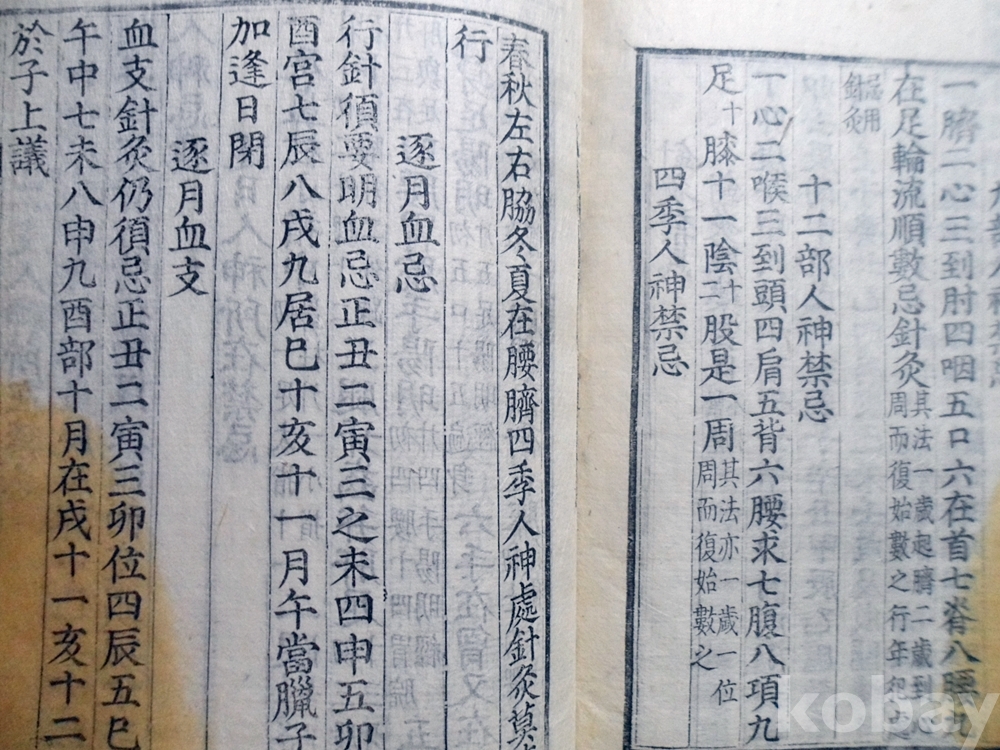 部人神禁忌
一臍二心三到肘四咽五口六在首七脊八腰九
在足輪流順數忌針灸其法一歲起臍二歲到心周而復始數之行年犯之
忌用針灸
十二部人神禁忌
一心二喉三到頭四肩五背六腰求七腹八項九
足十膝十一陰十二股是一周其法亦一歲一位周而復始數之
四季人神禁忌
春秋左右脇冬夏在腰臍四季人神處針灸莫
行
逐月血忌
行針須要明血忌正丑二寅三之未四申五卯
酉宮七辰八戌九居巳十亥十一月午當臘子
加逢日閉
逐月血支
血支針灸仍須忌正丑二寅三卯位四辰五巳
午中七未八申九酉部十月在戌十一亥十二
於子上議
kobay